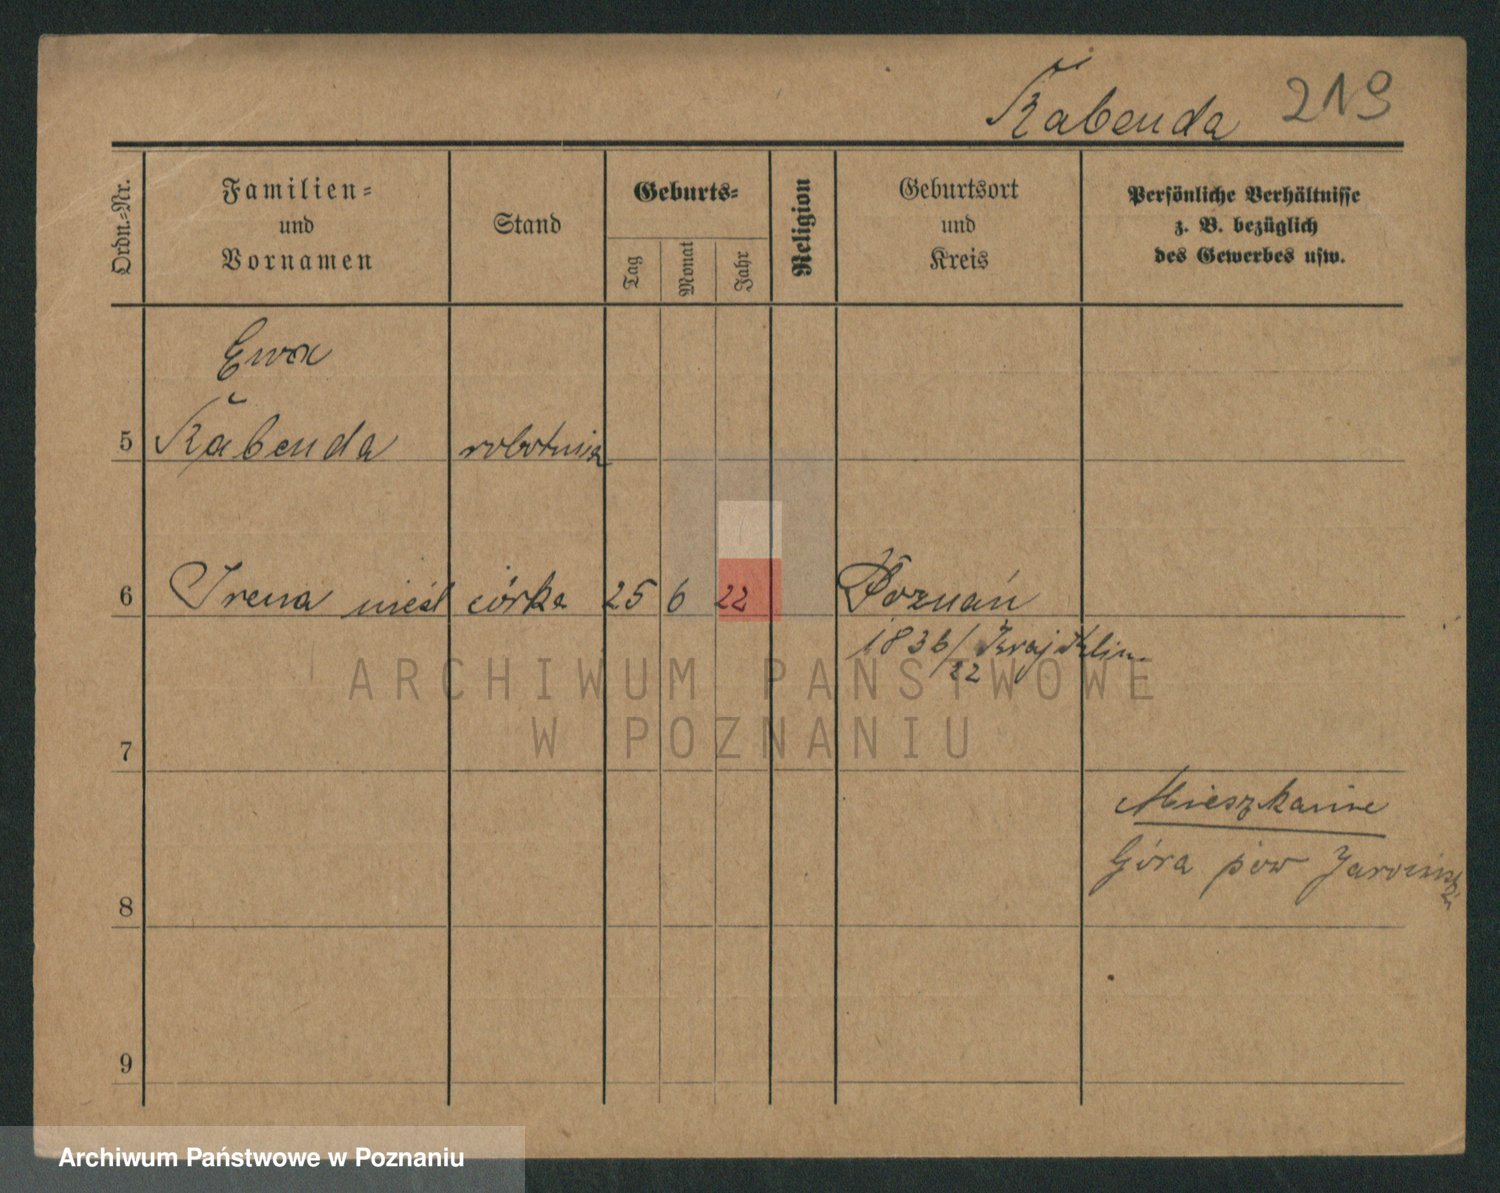 Kabenda 219
Ordn.=Nr.
Familien=
und
Vornamen
Stand
Geburts=
Tag
Monat
Jahr
Religion
Geburtsort
und
Kreis
Persönliche Verhältnisse
z. B. bezüglich
des Gewerbes usw.
Ewa
5 Kabenda robotnica
6 Irena nieśl córka 25 6 22 Poznań
1836/22
ARCHIWUM PAŃSTWOWE
W POZNANIU
7
Mieszkanie
Góra pow
8
9
Archiwum Państwowe w Poznaniu